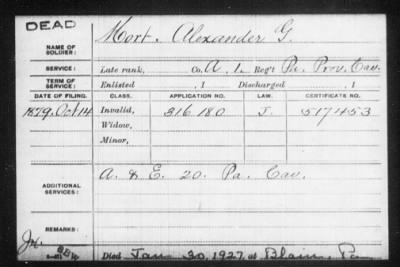 DEAD
NAME OF SOLDIER: Mort, Alexander G.
SERVICE: Late rank, Co. A, 1. Reg't Pa. Prov. Cav.
TERM OF SERVICE: Enlisted , 1 Discharged , 1
DATE OF FILING. CLASS. APPLICATION NO. LAW. CERTIFICATE NO.
1879, Oct 14 Invalid, 316 180 J. 517453
Widow,
Minor,
ADDITIONAL SERVICES: A. & E. 20. Pa. Cav.
REMARKS:
Died Jan 30, 1927, at Blain, Pa